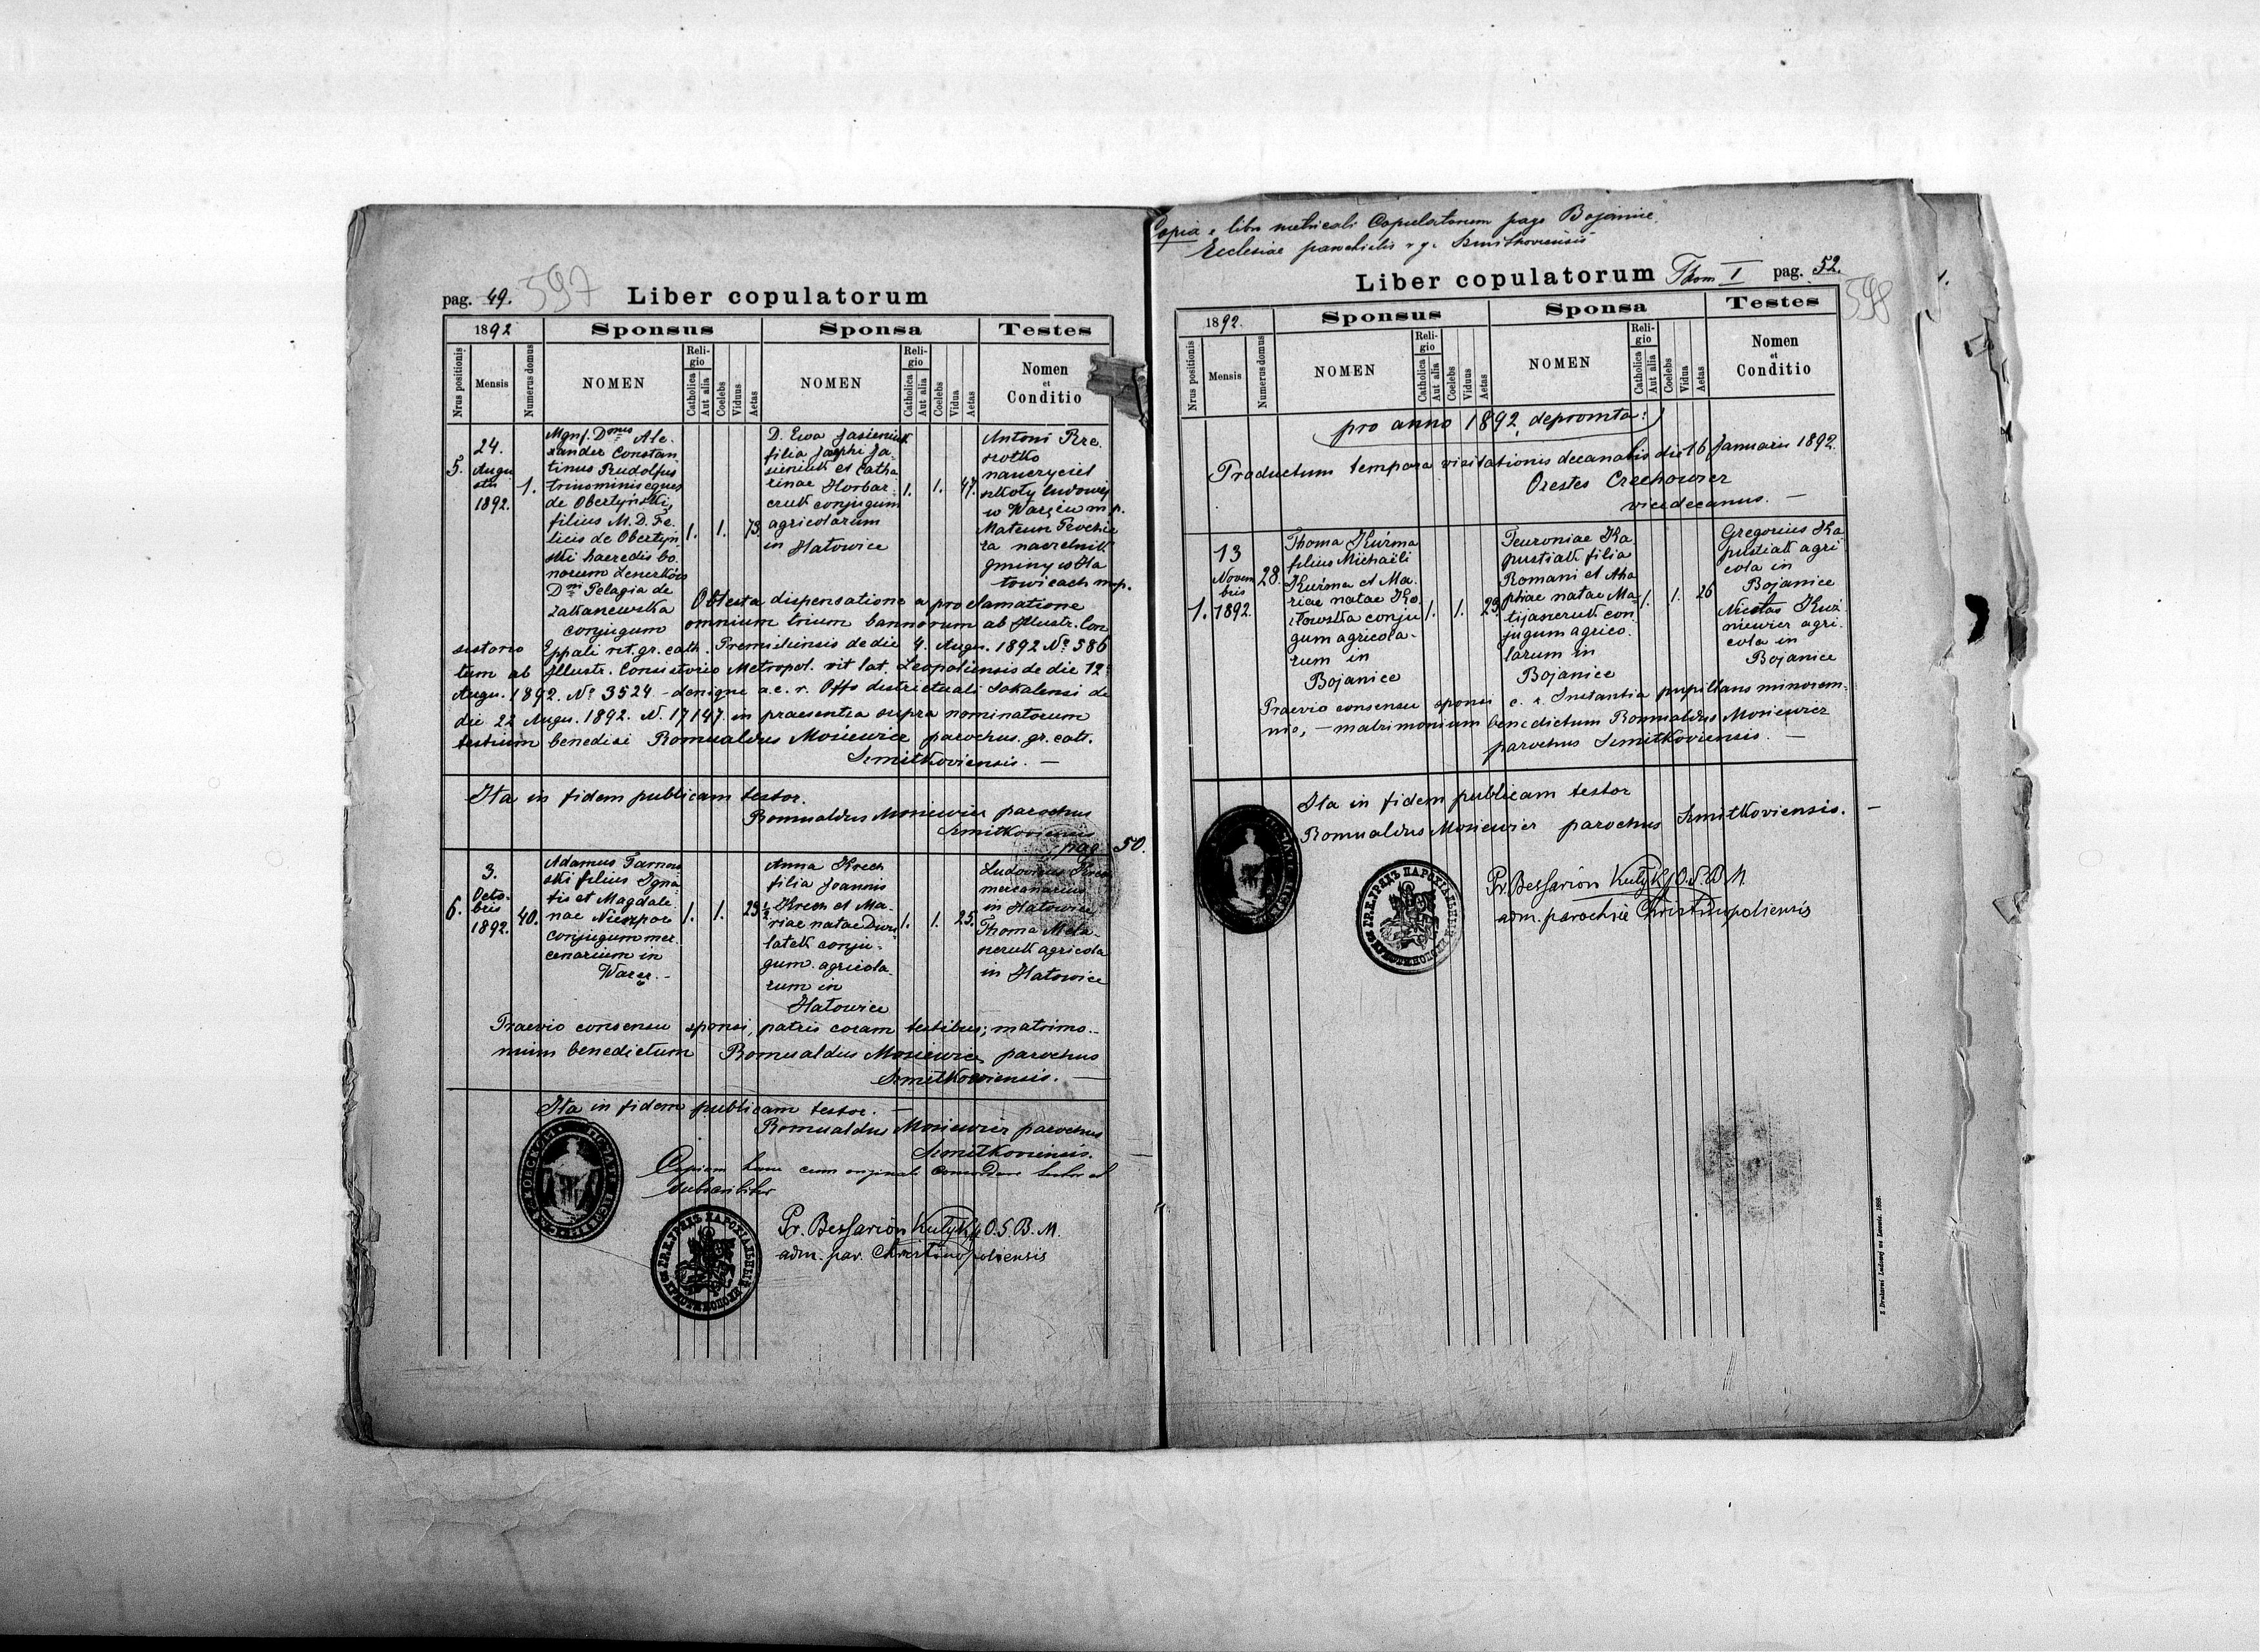 pag. 49.
597
Liber copulatorum
1892
Sponsus
Sponsa
Testes
Nrus positionis
Mensis
Numerus domus
NOMEN
Religio
Catholica
Aut alia
Coelebs
Viduus
Aetas
NOMEN
Religio
Catholica
Aut alia
Coelebs
Vidua
Aetas
Nomen
et
Conditio
5.
24.
Augu
sti
1892.
1.
Mgnf. Dnus Ale-
xander Constan-
tinus Rudolfus
trinominis eques
de Obertyński,
filius M. D. Fe-
licis de Obertyn
ski haeredis bo-
norum
Pelagia de
conjugum
1.
1.
73.
D. Ewa Jasieniuk
filia Josephi Ja-
sieniuk et Catha
rinae Horbac-
czuk conjugum
agricolarum
in Chatowice
1.
1.
47.
Antoni
nauczyciel
szkoły ludowej
w Warężu mp.
naczelnik
gminy w
mp.
Obtenta dispensatione a proclamatione
omnium trium bannorum ab Illustr. Con
sistorio Eppali rit. gr. cath. Premisliensis de die 4. Augu. 1892 No 586
tum ab Illustr. Consistorio Metropol. rit. lat. Leopoliensis de die 12
Augu. 1892. No 3524. - denique a c. r. Offo districtuali Sokalensi de
die 22 Augu. 1892. N. 17147. in praesentia supra nominatorum
testium benedixi Romualdus Mosiewicz parochus gr. cath.
Szmitkoviensis. —
Ita in fidem publicam testor.
Romualdus Mosiewicz parochus
Szmitkoviensis
pag 50.
6.
3.
Octo-
bris
1892.
40.
Adamus Tarnow
ski filius Igna-
tii et Magdale-
nae Nieszpor
conjugum mer-
cenarium in
Waręz. -
1.
1.
23 1/2
Anna Krech
filia Joannis
Krech et Ma-
riae natae
conju-
gum agricola-
rum in
Chatowice
1.
1.
25.
Ludovicus
mercenarius
in Chatowice
Thoma
agricola
in Chatowice
Praevio consensu sponsi, patris coram testibus; matrimo-
nium benedictum Romualdus Mosiewicz parochus
Szmitkoviensis. —
Ita in fidem publicam testor. —
Romualdus Mosiewicz parochus
Szmitkoviensis. —
Copiam hanc cum originali concordare testor et
subscribitur
Pr. Bessarion Kutyk O.S.B.M.
adm. par. Christinopoliensis
Copia e libro metricali Copulatorum pago Bojanice
Ecclesiae parochialis r. g. Szmitkoviensis
Liber copulatorum Tom I pag. 52.
598
1892.
Sponsus
Sponsa
Testes
Nrus positionis
Mensis
Numerus domus
NOMEN
Religio
Catholica
Aut alia
Coelebs
Viduus
Aetas
NOMEN
Religio
Catholica
Aut alia
Coelebs
Vidua
Aetas
Nomen
et
Conditio
pro anno 1892 depromta:
Productum tempore visitationis decanalis die 16 Januarii 1892.
Orestes Czechowicz
vicedecanus. —
1.
13
Novem
bris
1892.
28.
Thoma Kuśma
filius Michaëli
Kuśma et Ma-
riae natae Ko-
złowska conju
gum agricola-
rum in
Bojanice
1.
1.
29
Teuroniae Ka
pustiak filia
Romani et Aha
phiae natae Ma-
tijaszczuk con
jugum agrico-
larum in
Bojanice
1.
1.
26
Gregorius Ka
pustiak agri
cola in
Bojanice
Nicetas
agri-
cola in
Bojanice
Praevio consensu sponsi c. r. Instantia pupillaris minoren-
nis, — matrimonium benedictum Romualdus Mosiewicz
parochus Szmitkoviensis. —
Ita in fidem publicam testor
Romualdus Mosiewicz parochus Szmitkoviensis. —
Pr. Bessarion Kutyk O.S.B.M.
adm. parochiae Christinopoliensis
Z Drukarni Ludowej we Lwowie. 1889.